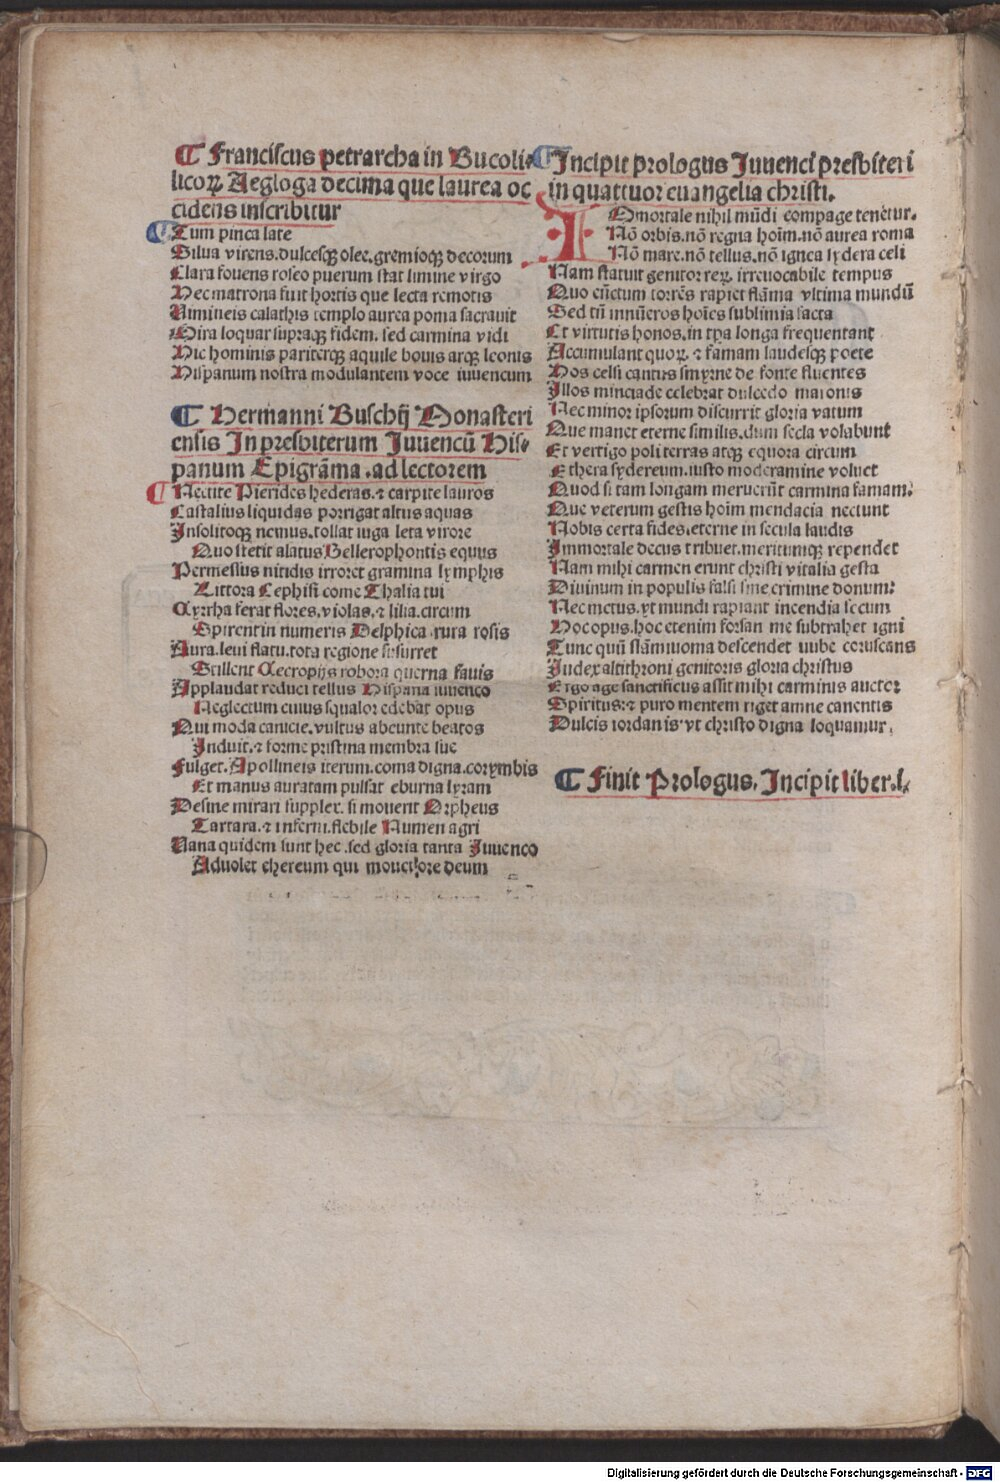 ¶ Franciscus petrarcha in Bucoli⸗
licoꝝ Aegloga decima que laurea oc
cidens inscribitur
Tum pinea late
Silua virens. dulcesqꝫ olee. gremioqꝫ decorum
Clara fouens roseo puerum stat limine virgo
Hec matrona fuit hortis que lecta remotis
Uimineis calathis templo aurea poma sacrauit
Mira loquar supraqꝫ fidem. sed carmina vidi
Hic hominis pariterqꝫ aquile bouis atqꝫ leonis
Hispanum nostra modulantem voce iuuencum
¶ Hermanni Buschij Monasteri
ensis In presbiterum Juuencū His⸗
panum Epigrāma . ad lectorem
Nectite Pierides hederas. ⁊ carpite lauros
Castalius liquidas porrigat altus aquas
Insolitoqꝫ nemus. tollat iuga leta virore
Quo stetit alatus Bellerophontis equus
Permessus nitidis irroret gramina lymphis
Littora Cephisi come Thalia tui
Cyrrha ferat flores. violas. ⁊ lilia. circum
Spirent in numeris Delphica rura rosis
Aura. leui flatu. tota regione susurret
Stillent Cecropijs robora querna fauis
Applaudat reduci tellus Hispana iuuenco
Neglectum cuius squalor edebat opus
Qui moda canicie. vultus abeunte beatos
Induit. ⁊ forme pristina membra sue
Fulget. Apollineis iterum. coma digna. corymbis
Et manus auratam pulsat eburna lyram
Desine mirari supplex. si mouerit Orpheus
Tartara. ⁊ inferni. flebile Numen agri
Uana quidem sunt hec. sed gloria tanta Juuenco
Aduolet ethereum qui mouet ore deum
¶ Incipit prologus Juuenci presbiteri
in quattuor euangelia christi.
I Mmortale nihil mūdi compage tenetur.
Nō orbis. nō regna hoīm. nō aurea roma
Nō mare. nō tellus. nō ignea sydera celi
Nam statuit genitor reꝝ. irreuocabile tempus
Quo cūctum torrēs rapiet flāma vltima mundū
Sed tn̄ innūeros hoīes sublimia facta
Et virtutis honos. in tp̄a longa frequentant
Accumulant quoꝝ. ⁊ famam laudesqꝫ poete
Hos celsi cantus smyrne de fonte fluentes
Illos minciade celebrat dulcedo maronis
Nec minor ipsorum discurrit gloria vatum
Que manet eterne similis. dum secla volabunt
Et vertigo poli terras atqꝫ equora circum
Ethera sydereum. iusto moderamine voluet
Quod si tam longam meruerūt carmina famam.
Que veterum gestis hoīm mendacia nectunt
Nobis certa fides. eterne in secula laudis
Immortale decus tribuet. meritumqꝫ rependet
Nam mihi carmen erunt christi vitalia gesta
Diuinum in populis falsi sine crimine donum.
Nec metus. vt mundi rapiant incendia secum
Hoc opus. hoc etenim forsan me subtrahet igni
Tunc quū flāmiuoma descendet nube coruscans
Iudex altithroni genitoris gloria christus
Ergo age sanctificus assit mihi carminis auctor
Spiritus: ⁊ puro mentem riget amne canentis
Dulcis iordanis. vt christo digna loquamur.
¶ Finit Prologus. Incipit liber. I.
Digitalisierung gefördert durch die Deutsche Forschungsgemeinschaft - DFG